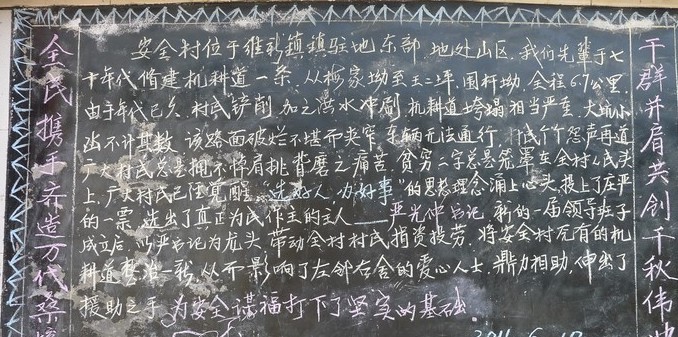 全民携手齐造万代桑
安全村位于维新镇镇驻地东部,地处山区,我们先辈于七
十年代修建机耕道一条,从梅家坳至王二坪,围杆坳,全程6.7公里,
由于年代已久,村民铲削,加之洪水冲刷,机耕道垮塌相当严重,大坑小
凼不计其数,该路面破烂不堪而夹窄,车辆无法通行,村民个个怨声再道
广大村民总是拥不掉肩挑背磨之痛苦,贫穷二字总是笼罩在全村人民头
上,广大村民已经觉醒,"选能人,办好事"的思想理念涌上心头,投上了庄严
的一票,选出了真正为民作主的主人——严光仲书记,新的一届领导班子
成立后,以严书记为龙头,带动全村村民捐资投劳,将安全村充有的机
耕道整治一新,从而影响了左邻右舍的爱心人士,鼎力相助,伸出了
援助之手,为安全谋福打下了坚实的基础。
干群并肩共创千秋伟